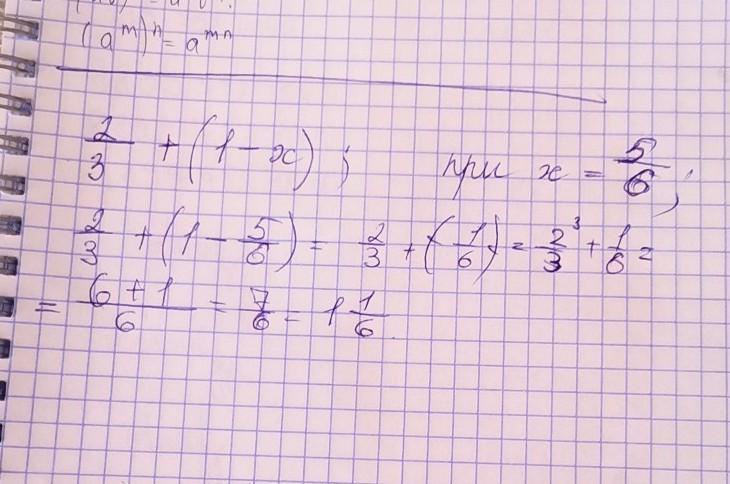 (a^m)^n = a^mn
2/3 + (1 - x); при x = 5/6;
2/3 + (1 - 5/6) = 2/3 + (1/6) = 2^3/3 + 1/6 =
= 6+1/6 = 7/6 = 1 1/6.